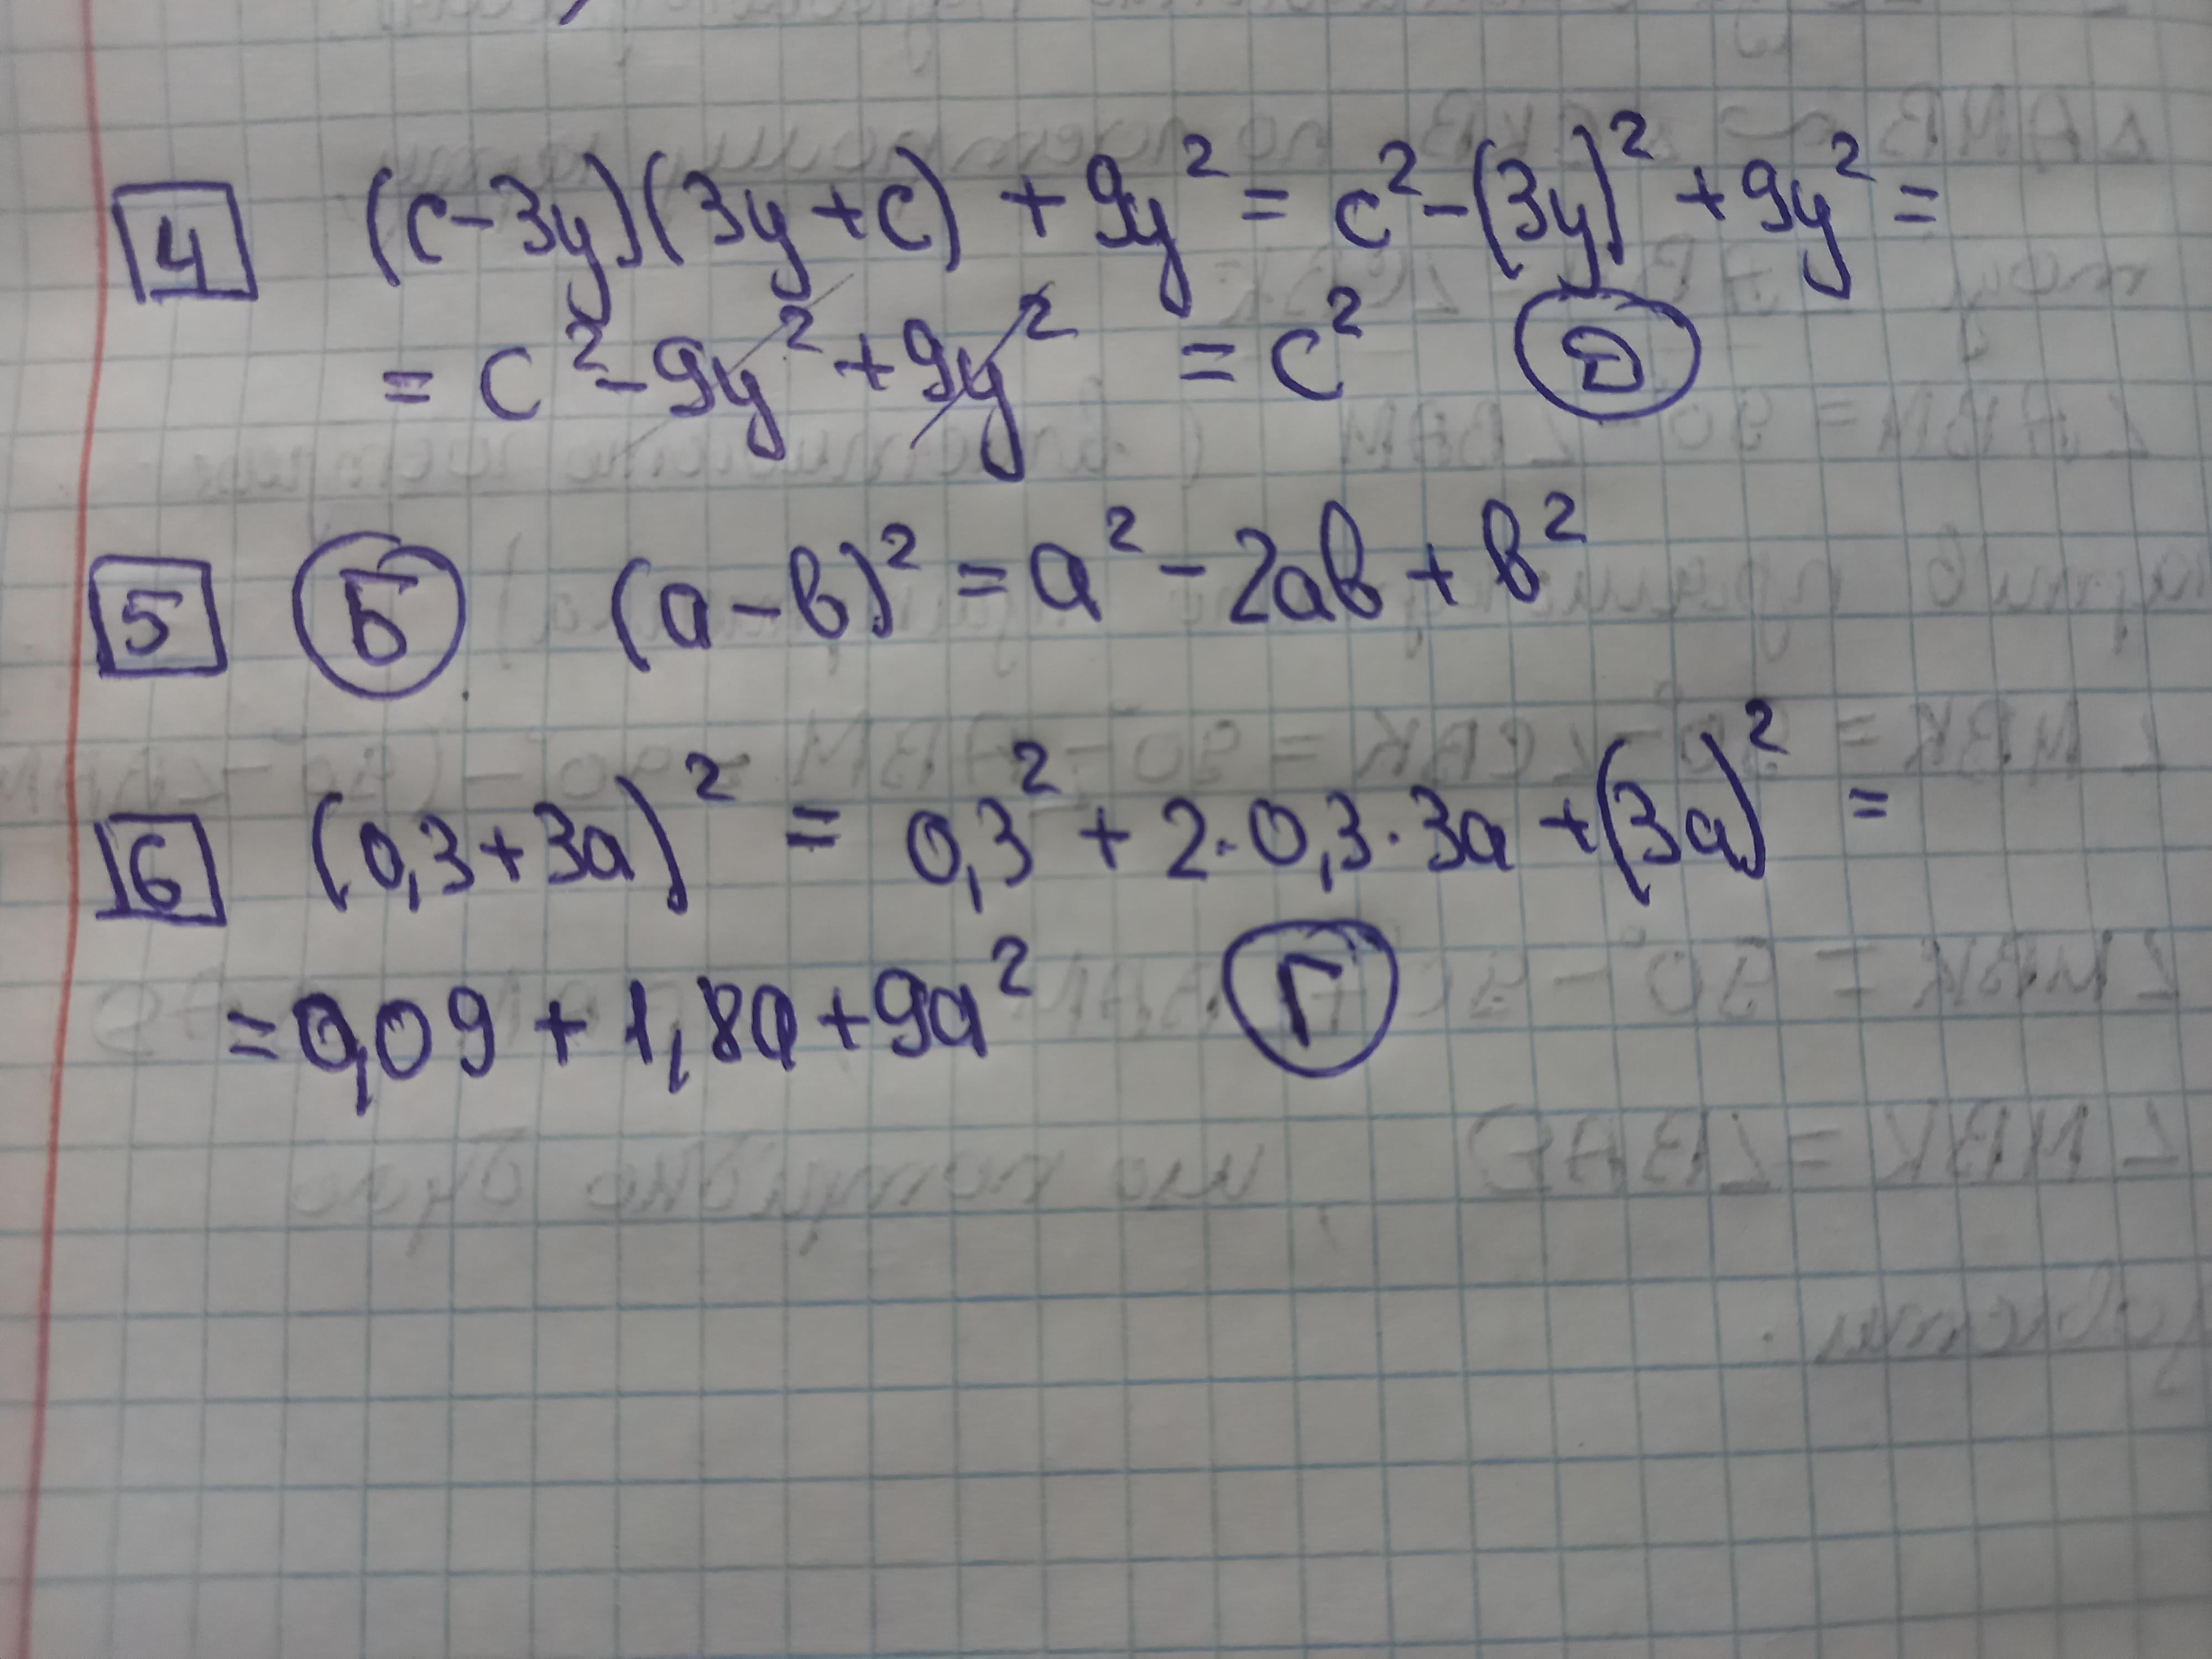 4 (c-3y)(3y+c) + 9y² = c²-(3y)² + 9y² =
= c²-9y²+9y² = c² Д
5 Б (a-b)² = a² - 2ab + b²
6 (0,3+3a)² = 0,3² + 2·0,3·3a + (3a)² =
= 0,09 + 1,8a + 9a² Г